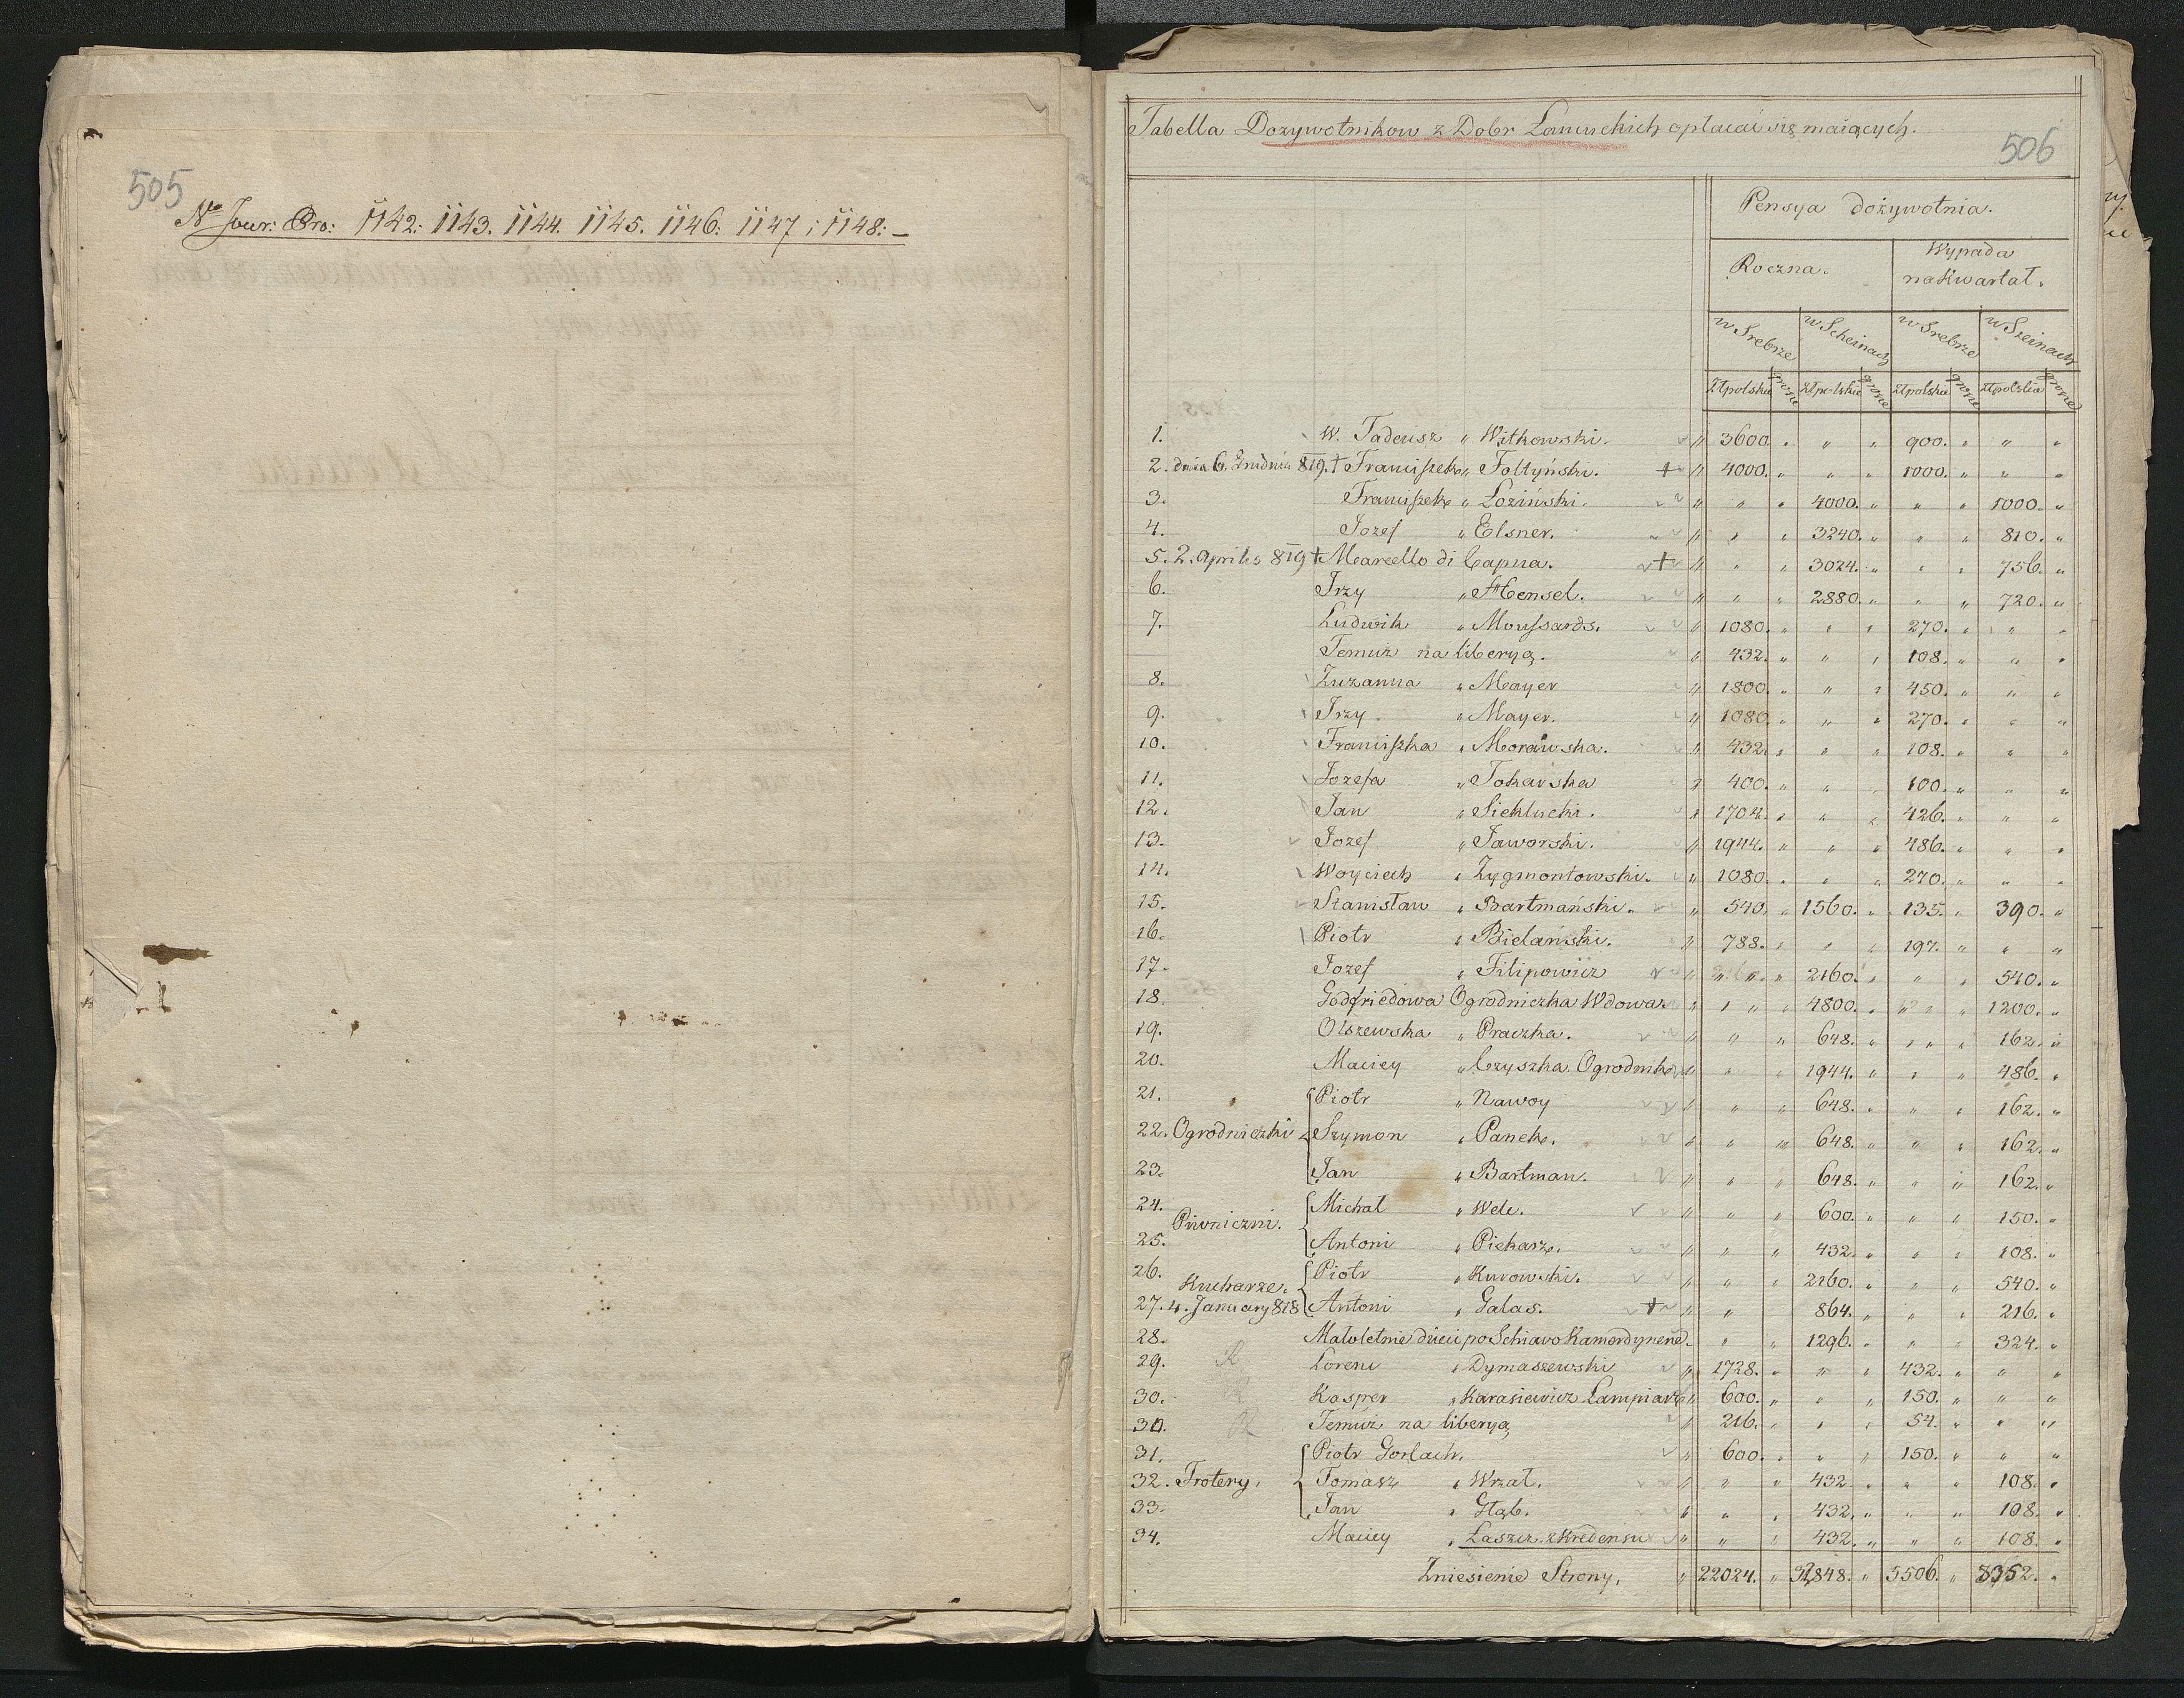 505
No Jour: Pro: 1142: 1143. 1144. 1145. 1146: 1147 i 1148: –
Tabella Dozywotnikow z Dobr Lancuckich opłacać się maiących.
506
Pensya dożywotnia.
Roczna.
Wypada
na Kwartał.
w Srebrze w Scheinach w Srebrze w Szeinach
Złpolskie grosze Złpolskie grosze Złpolskie grosze Złpolskie grosze
1. W. Tadeusz " Witkowski. " 3600. " " " 900. " " "
2. dnia 6. Grudnia 819. † Franciszek " Foltyński. + " 4000. " " " 1000. " " "
3. Franciszek " Loziński. " " " 4000. " " " 1000. "
4. Jozef " Elsner. " " " 3240. " " " 810. "
5. 2. Aprilis 819 † Marcello di Capua. + " " " 3024. " " " 756. "
6. Jrzy " Hensel. " " " 2880. " " " 720. "
7. Ludwik " Moussards. " 1080. " " " 270. " " "
Temuż na liberyą. " 432. " " " 108. " " "
8. Zuzanna " Mayer " 1800. " " " 450. " " "
9. Jrzy " Mayer. " 1080. " " " 270. " " "
10. Franciszka " Morawska. " 432. " " " 108. " " "
11. Jozefa " Tokarska " 400. " " " 100. " " "
12. Jan " Sieklucki. " 1704. " " " 426. " " "
13. Jozef " Jaworski. " 1944. " " " 486. " " "
14. Woyciech " Zygmontowski. " 1080. " " " 270. " " "
15. Stanisław " Bartmański. " 540. " 1560. " 135. " 390. "
16. Piotr " Bielański. " 788. " " " 197. " " "
17. Jozef " Filipowicz " " " 2160. " " " 540. "
18. Godfriedowa Ogrodniczka Wdowa " " " 4800. " " " 1200. "
19. Olszewska " Praczka. " " " 648. " " " 162. "
20. Maciey " Czyszka Ogrodnik " " " 1944. " " " 486. "
21. Piotr " Nawoy " " " 648. " " " 162. "
22. Ogrodniczki Szymon " Panek. " " " 648. " " " 162. "
23. Jan " Bartman. " " " 648. " " " 162. "
24. Michał " Welc. " " " 600. " " " 150. "
Piwniczni.
25. Antoni " Piekarz. " " " 432. " " " 108. "
26. Piotr " Kurowski. " " " 2160. " " " 540. "
Kucharze.
27. 4. January 818 Antoni " Galas. + " " " 864. " " " 216. "
28. Małoletnie dzieci po Schiavo Kamerdynerze. " " 1296. " " " 324. "
29. R Lorenc " Dymaszewski " 1728. " " " 432. " " "
30. R Kasper " Karasiewicz Lampiarz " 600. " " " 150. " " "
30. R Temuż na liberyą " 216. " " " 54. " " "
31. Piotr Gorlach. " 600. " " " 150. " " "
32. Frotery. Tomasz " Wrzał. " " " 432. " " " 108. "
33. Jan " Głąb. " " " 432. " " " 108. "
34. Maciey " Laszcz z Kredensu " " " 432. " " " 108. "
Zniesienie Strony. " 22024. " 32,848. " 5506. " 8352. "